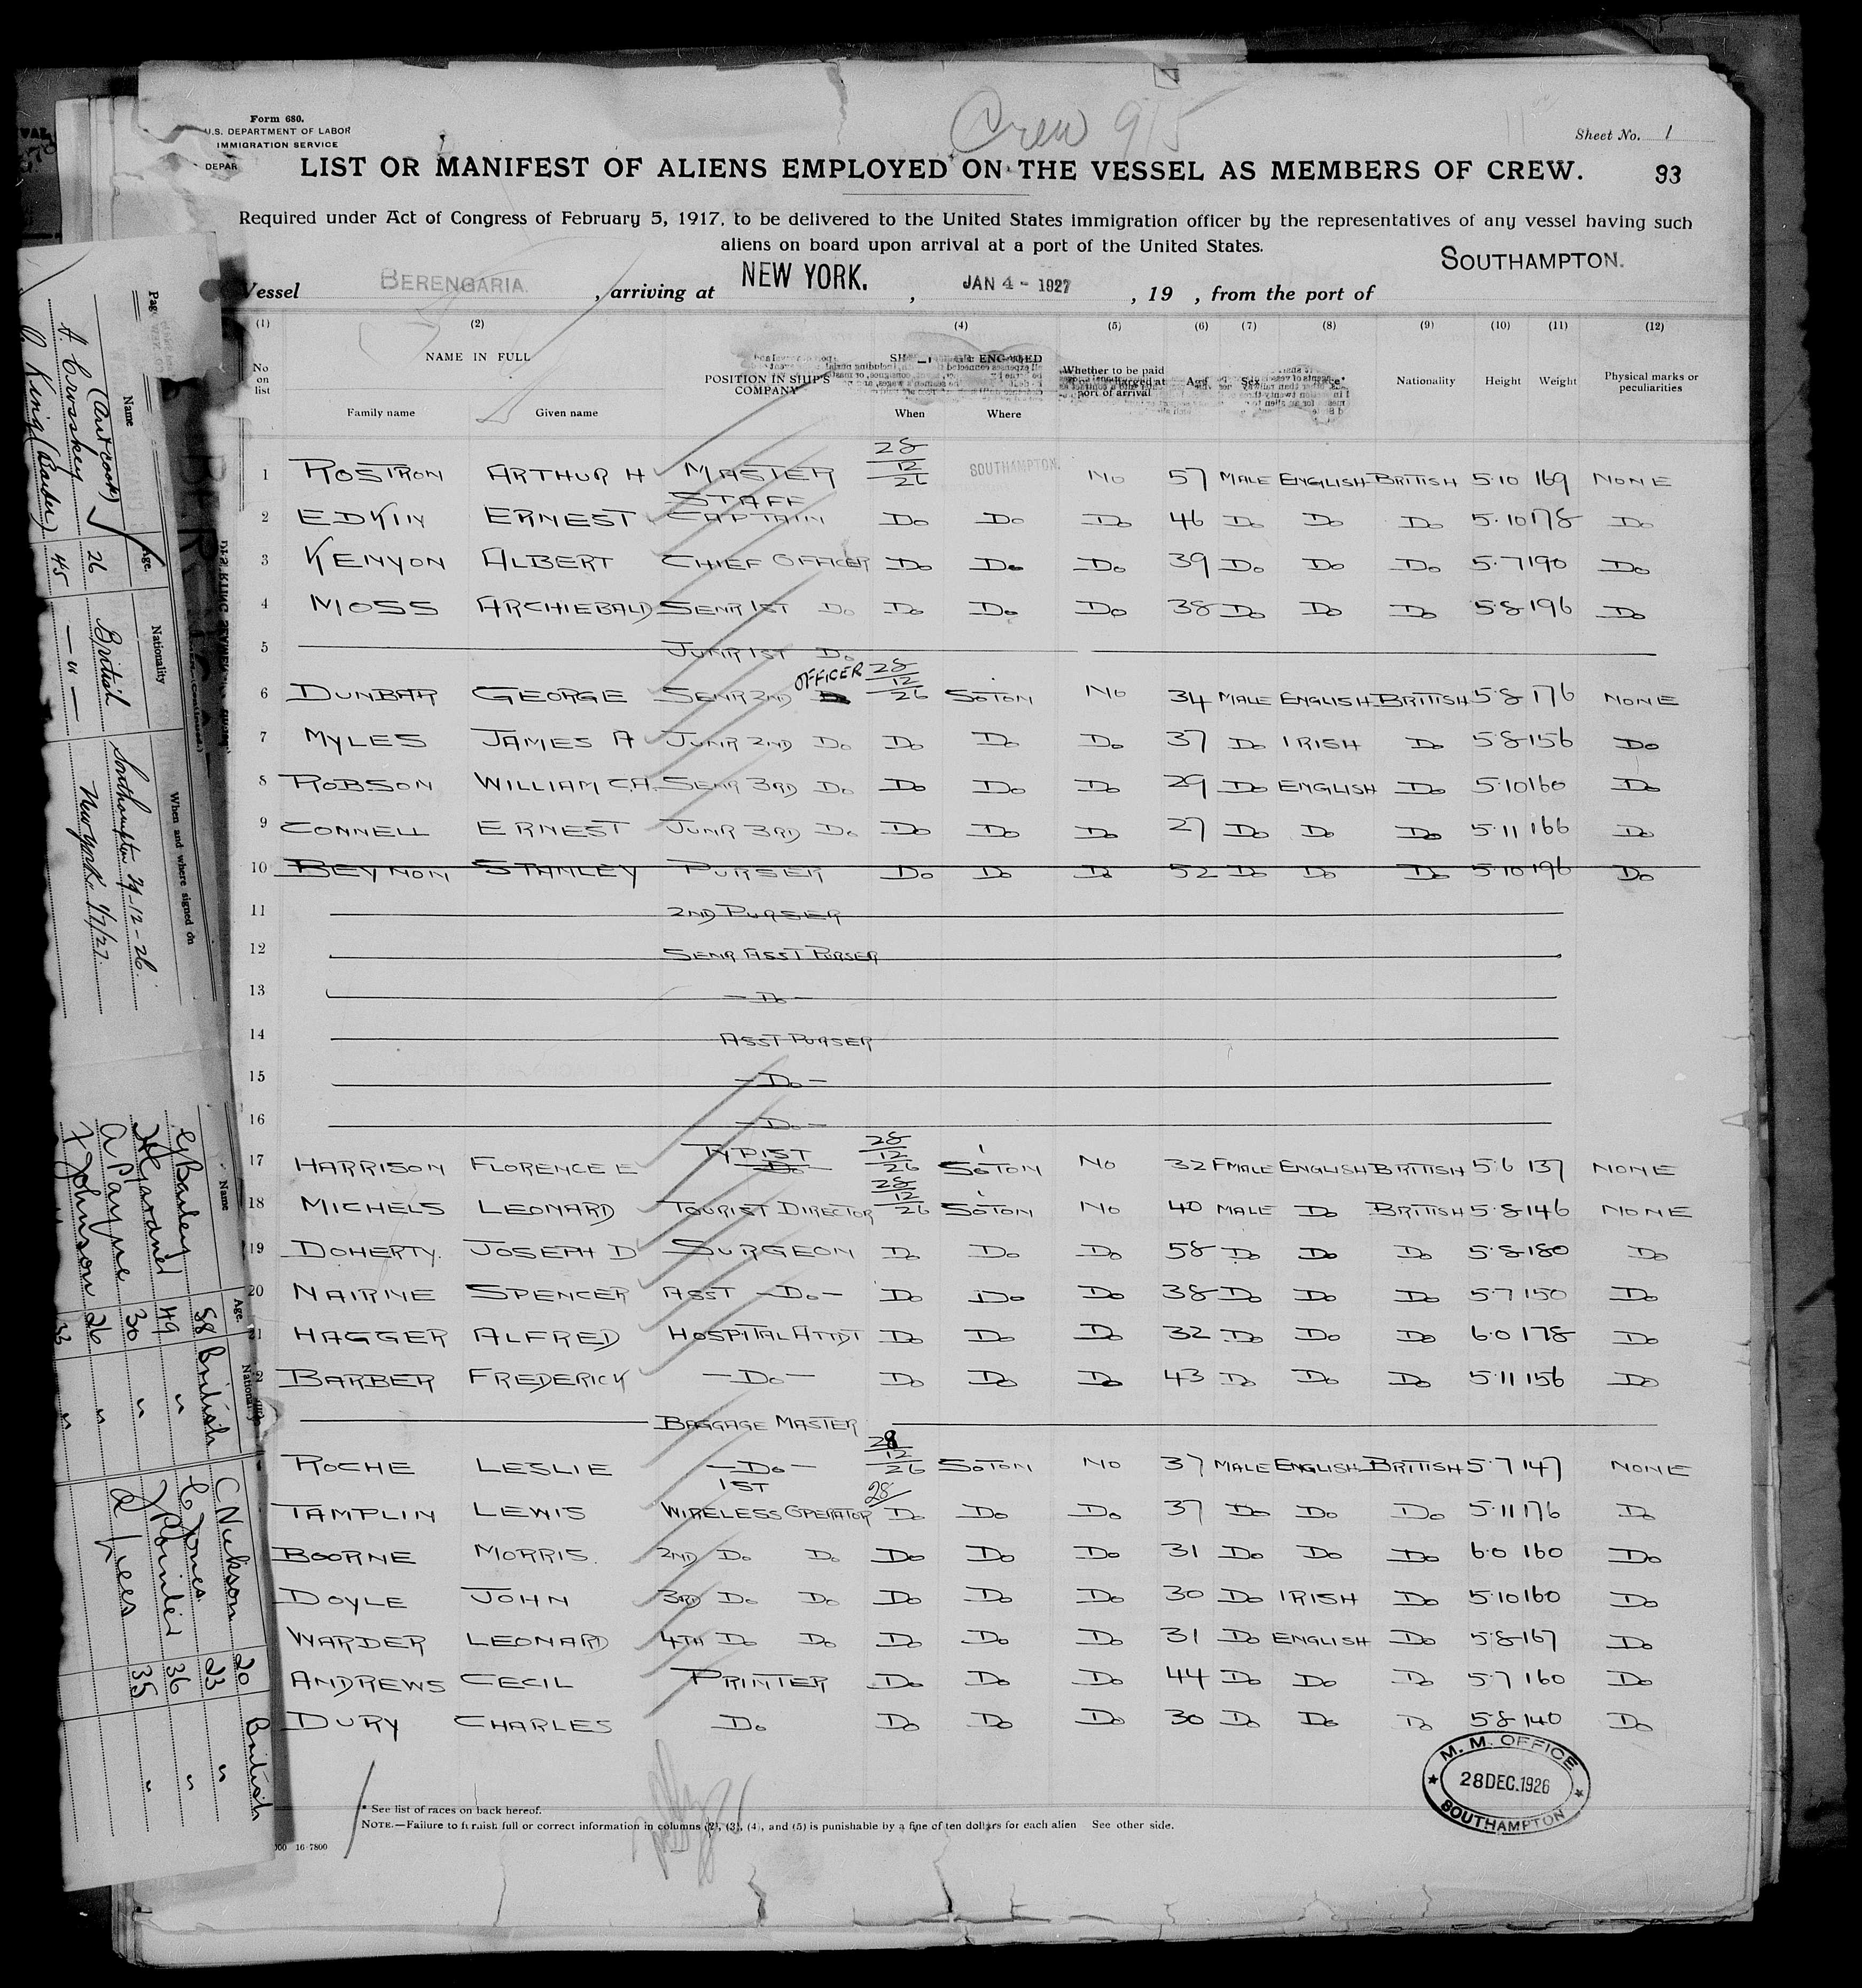 Crew 915
Form 680.
U.S. DEPARTMENT OF LABOR
IMMIGRATION SERVICE
DEPAR
Sheet No. 1
LIST OR MANIFEST OF ALIENS EMPLOYED ON THE VESSEL AS MEMBERS OF CREW.
93
Required under Act of Congress of February 5, 1917, to be delivered to the United States immigration officer by the representatives of any vessel having such
aliens on board upon arrival at a port of the United States.
Vessel BERENGARIA. , arriving at NEW YORK. , JAN 4 - 1927 , 19 , from the port of SOUTHAMPTON.
(1) (2) (4) (5) (6) (7) (8) (9) (10) (11) (12)
No on list NAME IN FULL Family name Given name POSITION IN SHIP'S COMPANY When Where Whether to be paid at port of arrival Age Sex Nationality Height Weight Physical marks or peculiarities
1 ROSTRON ARTHUR H MASTER 28/12/26 SOUTHAMPTON. NO 57 MALE ENGLISH BRITISH 5·10 169 NONE
2 EDKIN ERNEST STAFF CAPTAIN Do Do Do 46 Do Do Do 5·10 178 Do
3 KENYON ALBERT CHIEF OFFICER Do Do Do 39 Do Do Do 5·7 190 Do
4 MOSS ARCHIEBALD SENR 1ST Do Do Do Do 38 Do Do Do 5·8 196 Do
5 JUNR 1ST Do
6 DUNBAR GEORGE SENR 2ND OFFICER 28/12/26 SOTON NO 34 MALE ENGLISH BRITISH 5·8 176 NONE
7 MYLES JAMES A JUNR 2ND Do Do Do Do 37 Do IRISH Do 5·8 156 Do
8 ROBSON WILLIAM C.A. SENR 3RD Do Do Do Do 29 Do ENGLISH Do 5·10 160 Do
9 CONNELL ERNEST JUNR 3RD Do Do Do Do 27 Do Do Do 5·11 166 Do
10 BEYNON STANLEY PURSER Do Do Do 52 Do Do Do 5·10 196 Do
11 2ND PURSER
12 SENR ASST PURSER
13 — Do —
14 ASST PURSER
15 — Do —
16 — Do —
17 HARRISON FLORENCE E TYPIST Do 28/12/26 SOTON NO 32 FMALE ENGLISH BRITISH 5·6 137 NONE
18 MICHELS LEONARD TOURIST DIRECTOR 28/12/26 SOTON NO 40 MALE Do BRITISH 5·8 146 NONE
19 DOHERTY. JOSEPH D SURGEON Do Do Do 58 Do Do Do 5·8 180 Do
20 NAIRNE SPENCER ASST — Do — Do Do Do 38 Do Do Do 5·7 150 Do
21 HAGGER ALFRED HOSPITAL ATTDT Do Do Do 32 Do Do Do 6·0 178 Do
2 BARBER FREDERICK — Do — Do Do Do 43 Do Do Do 5·11 156 Do
BAGGAGE MASTER
ROCHE LESLIE — Do — 28/12/26 SOTON NO 37 MALE ENGLISH BRITISH 5·7 147 NONE
TAMPLIN LEWIS 1ST WIRELESS OPERATOR 28/ Do Do Do 37 Do Do Do 5·11 176 Do
BOORNE MORRIS. 2ND Do Do Do Do Do 31 Do Do Do 6·0 160 Do
DOYLE JOHN 3RD Do Do Do Do Do 30 Do IRISH Do 5·10 160 Do
WARDER LEONARD 4TH Do Do Do Do Do 31 Do ENGLISH Do 5·8 167 Do
ANDREWS CECIL PRINTER Do Do Do 44 Do Do Do 5·7 160 Do
DURY CHARLES Do Do Do Do 30 Do Do Do 5·8 140 Do
M. M. OFFICE
28 DEC. 1926
SOUTHAMPTON
* See list of races on back hereof.
NOTE.—Failure to furnish full or correct information in columns (2), (3), (4), and (5) is punishable by a fine of ten dollars for each alien See other side.
16-7800
Page
Name Age. Nationality When and where signed on
A. Croskey 26 British Southampton 29-12-26.
King (Barber) 45 — " — New York 1/7/27.
Name Age. Nationality
Bailey 58 British
Gardner 49 "
A Payne 30 "
Johnson 26 "
33 "
C Nickson 20 British
C Jones 23 "
36 "
Lees 35 "